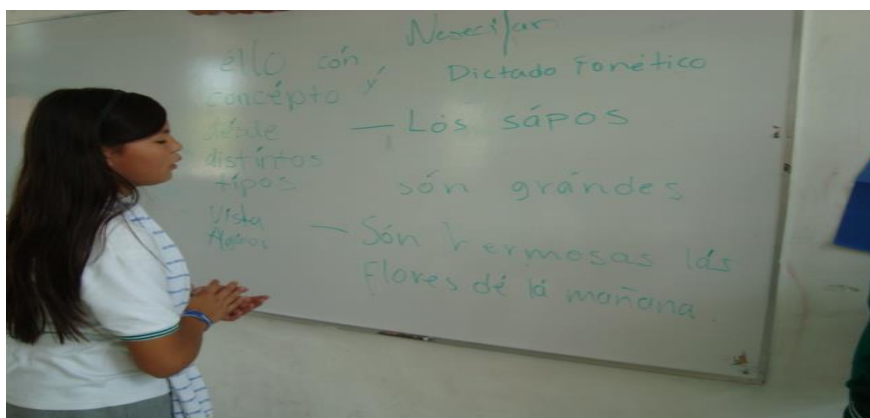 éllo con
concépto y
désde
distíntos
típos
Vista
Necesitar
Dictado Fonético
— Lós sápos
són grándes
— Són hermosas lás
Flores dé lá mañana.